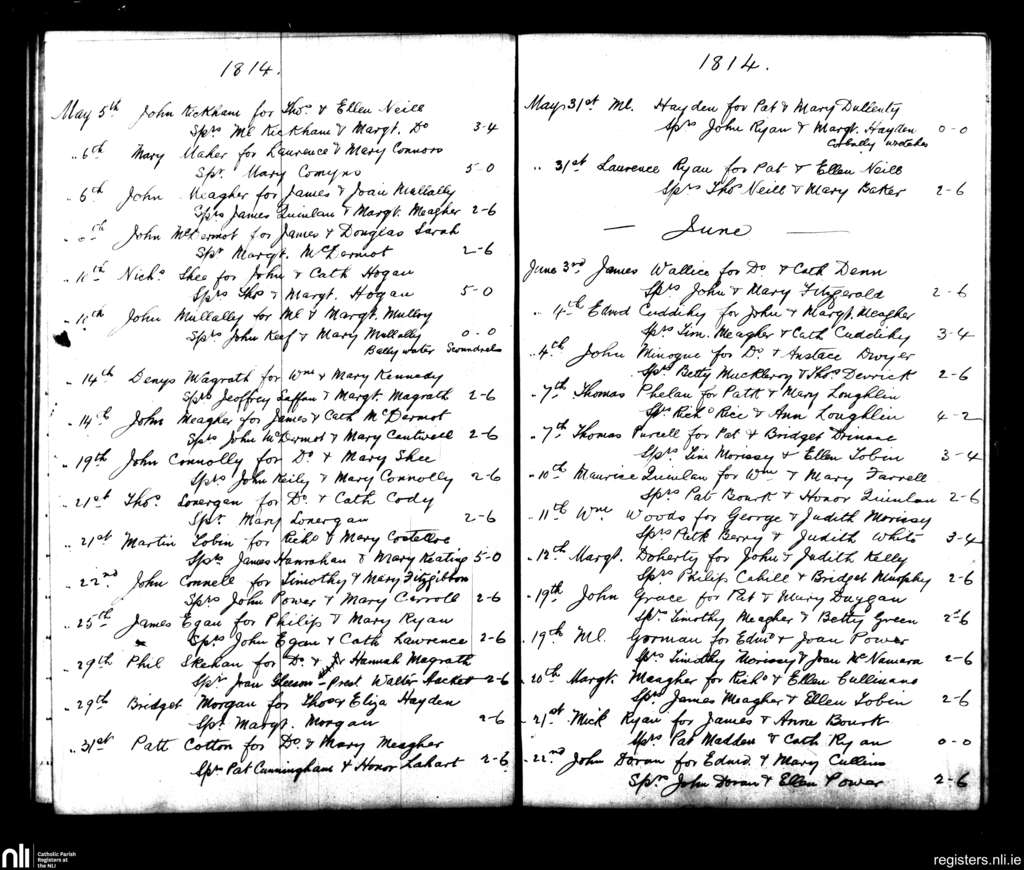 1814.
May 5th John Kickham for Thos. & Ellen Neill
Sprs Ml Kickham & Margt. Do 3-4
" 6th Mary Maher for Laurence & Mary Connors
Spr. Mary Comyns 5-0
" 6th John Meagher for James & Joan Mullally
Sprs James Quinlan & Margt. Meagher 2-6
John McDermot for James & Douglas Sarah
Spr Margt. McDermot 2-6
" 11th Nichs Shee for John & Cath Hogan
Sprs Thos & Margt. Hogan 5-0
" 11th John Mullally for Ml & Margt. Mulloy
Sprs John Keef & Mary Mullally 0-0
Ballywater Scoundrels
" 14th Denys Magrath for Wm & Mary Kennedy
Sprs Jeoffrey Saffan & Margt. Magrath 2-6
" 14th John Meagher for James & Cath McDermot
Sprs John McDermot & Mary Cantwell 2-6
" 19th John Connolly for Do & Mary Shee
Sprs John Keily & Mary Connolly 2-6
" 21st Thos. Lonergan for Do & Cath Cody
Spr. Mary Lonergan 2-6
" 21st Martin Tobin for Richd & Mary Costelloe
Sprs James Hanrahan & Mary Keating 5-0
" 22nd John Connell for Timothy & Mary Fitzgibbon
Sprs John Power & Mary Carroll 2-6
" 25th James Egan for Philip & Mary Ryan
Sprs John Egan & Cath Lawrence 2-6
" 29th Phil Skehan for Do & Hannah Magrath
Spr Joan Gleeson - Prest Walter Hacket 2-6
" 29th Bridget Morgan for Thos & Eliza Hayden
Spr Margt. Morgan 2-6
" 31st Patt Cotton for Do & Mary Meagher
Spr Pat Cunningham & Honor Lahart 2-6
1814.
May 31st Ml. Hayden for Pat & Mary Dullenty
Sprs John Ryan & Margt. Hayden 0-0
Corbally wretches
" 31st Laurence Ryan for Pat & Ellen Neill
Sprs Thos Neill & Mary Baker 2-6
— June —
June 3rd James Wallice for Do & Cath Denn
Sprs John & Mary Fitzgerald 2-6
" 4th Edmd Cuddihy for John & Margt. Meagher
Sprs Tim. Meagher & Cath Cuddihy 3-4
" 4th John Minogue for Do & Anstace Dwyer
Sprs Betty Muckleroy & Thos Derrick 2-6
" 7th Thomas Phelan for Patk & Mary Loughlin
Sprs Richd Rice & Ann Loughlin 4-2
" 7th Thomas Purcell for Pat & Bridget Drinane
Sprs Tim Morissy & Ellen Tobin 3-4
" 10th Maurice Quinlan for Wm & Mary Farrell
Sprs Pat Bourk & Honor Quinlan 2-6
" 11th Wm Woods for George & Judith Morissy
Sprs Patk Berry & Judith White 3-4
" 12th Margt. Doherty for John & Judith Kelly
Sprs Philip Cahill & Bridget Murphy 2-6
" 19th John Grace for Pat & Mary Duggan
Spr. Timothy Meagher & Betty Green 2-6
" 19th Ml. Gorman for Edmd & Joan Power
Sprs Timothy Morissy & Joan McNamara 2-6
" 20th Margt. Meagher for Richd & Ellen Cullinane
Sprs James Meagher & Ellen Tobin 2-6
" 21st Mick Ryan for James & Anne Bourk
Sprs Pat Madden & Cath Ryan 0-0
" 22nd John Doran for Edmd. & Mary Cullins
Spr. John Doran & Ellen Power 2-6
nli
Catholic Parish
Registers at
the NLI
registers.nli.ie